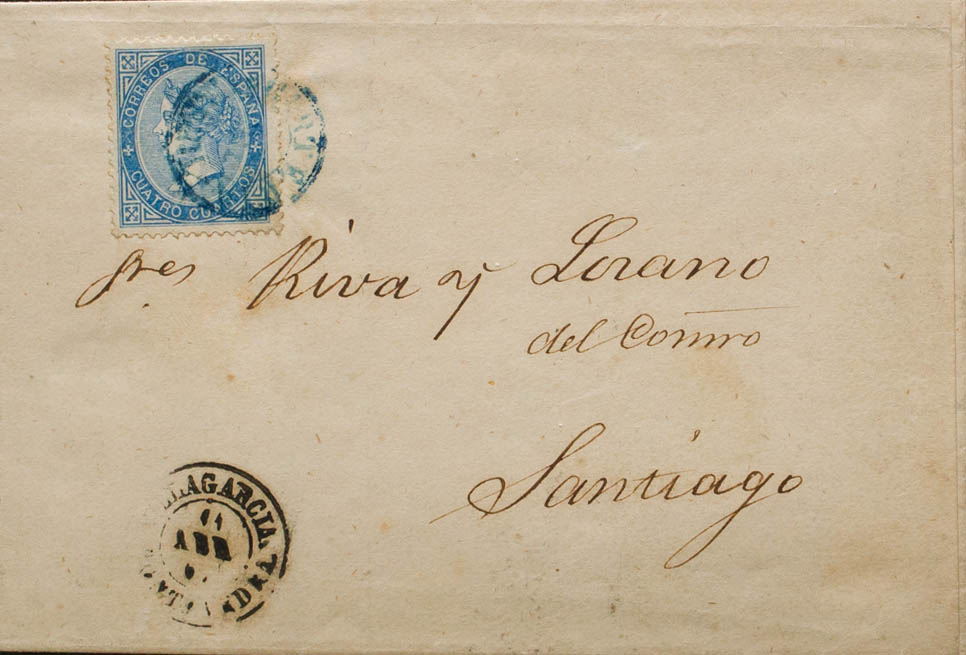 CORREOS DE ESPAÑA
CUATRO CUARTOS
Sres Riva y Lozano
del Comro
Santiago
LLAGARCIA
11
ABR